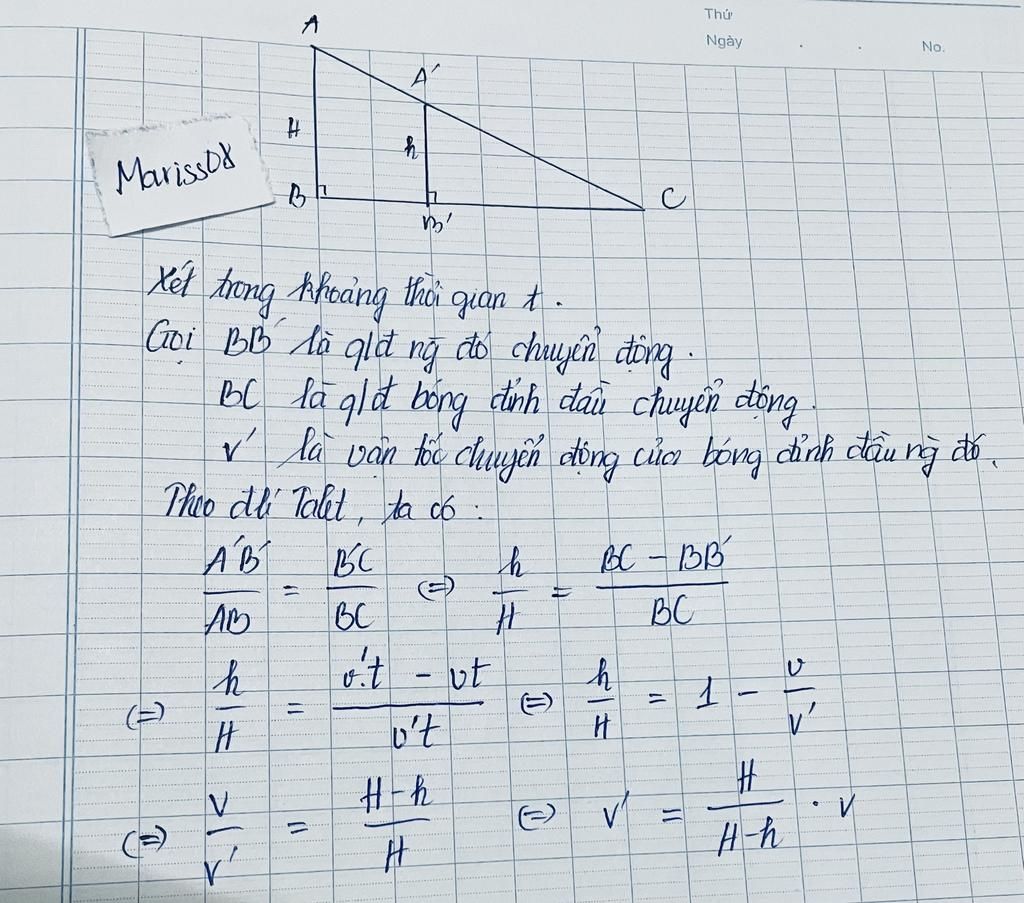 Thứ
Ngày . . No.
A
A'
H
h
Mariss08
B
B'
C
Xét trong khoảng thời gian t.
Gọi BB' là qđ ng đó chuyển động.
BC là qđ bóng đỉnh đầu chuyển động.
v' là vận tốc chuyển động của bóng đỉnh đầu ng đó.
Theo đlí Talet, ta có:
A'B'/AB = B'C/BC (=) h/H = (BC - BB')/BC
(=) h/H = (v'.t - vt)/v't (=) h/H = 1 - v/v'
(=) v/v' = (H-h)/H (=) v' = H/(H-h) . v